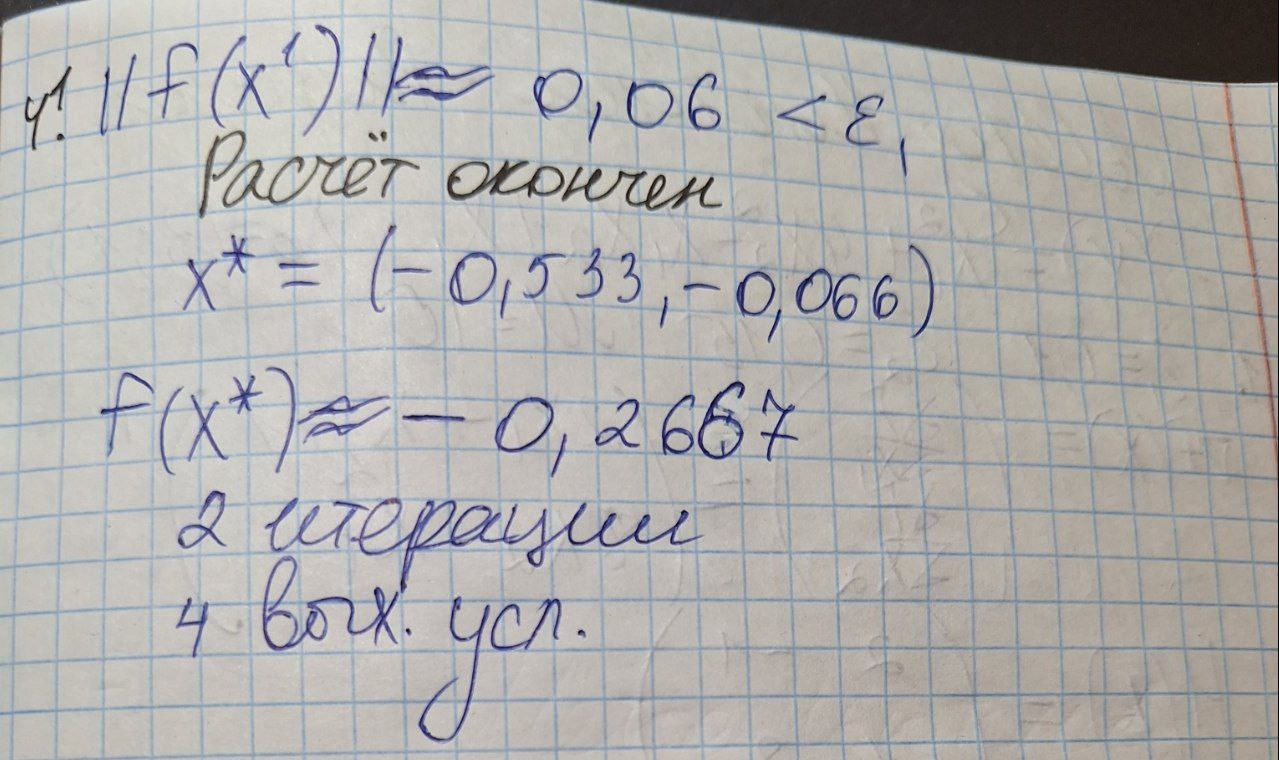 4! ||f(x¹)|| ≈ 0,06 < ε₁
Расчёт окончен
x* = (-0,533, -0,066)
f(x*) ≈ - 0,2667
2 итерации
4 вых. усл.